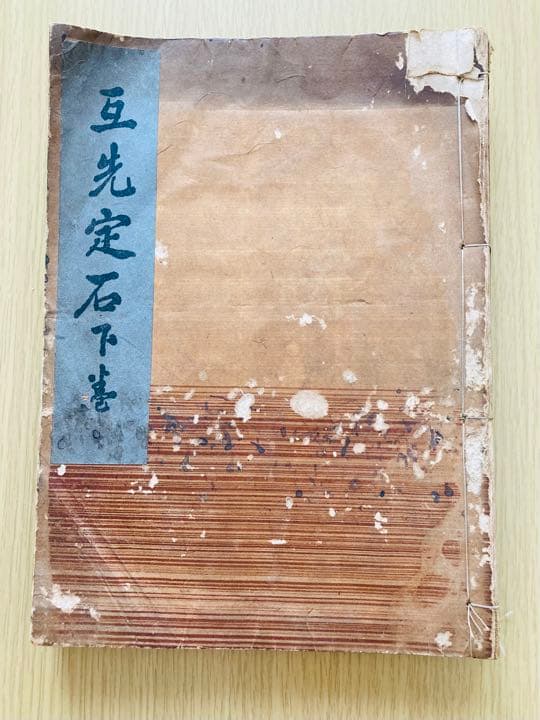 互先定石下巻